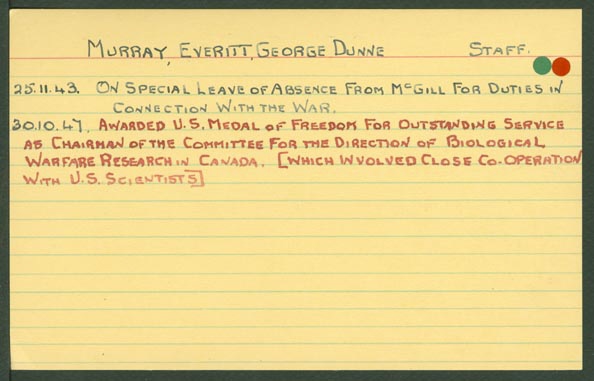 MURRAY, EVERITT, GEORGE DUNNE STAFF.
25.11.43. ON SPECIAL LEAVE OF ABSENCE FROM McGILL FOR DUTIES IN
CONNECTION WITH THE WAR.
30.10.47. AWARDED U.S. MEDAL OF FREEDOM FOR OUTSTANDING SERVICE
AS CHAIRMAN OF THE COMMITTEE FOR THE DIRECTION OF BIOLOGICAL
WARFARE RESEARCH IN CANADA. [WHICH INVOLVED CLOSE CO-OPERATION
WITH U.S. SCIENTISTS]